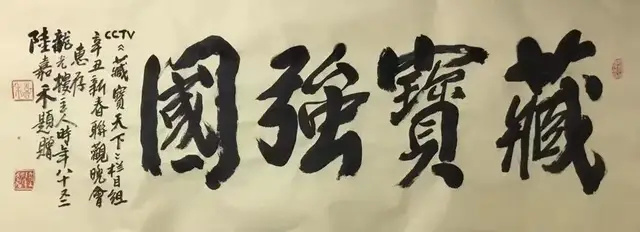 藏寶強國
CCTV《藏寶天下》栏目组
辛丑新春聯觀晚會
惠存
樓主人時年八十
陸嘉禾題贈